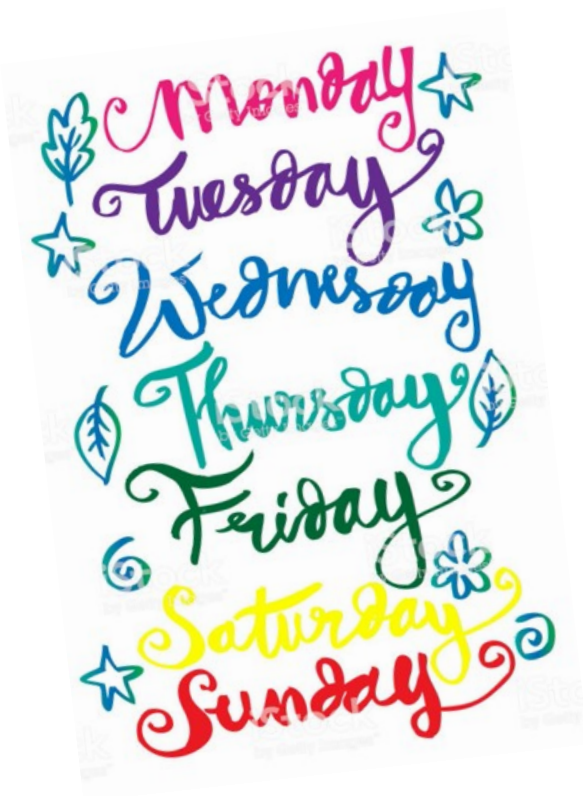 Monday
Tuesday
Wednesday
Thursday
Friday
Saturday
Sunday